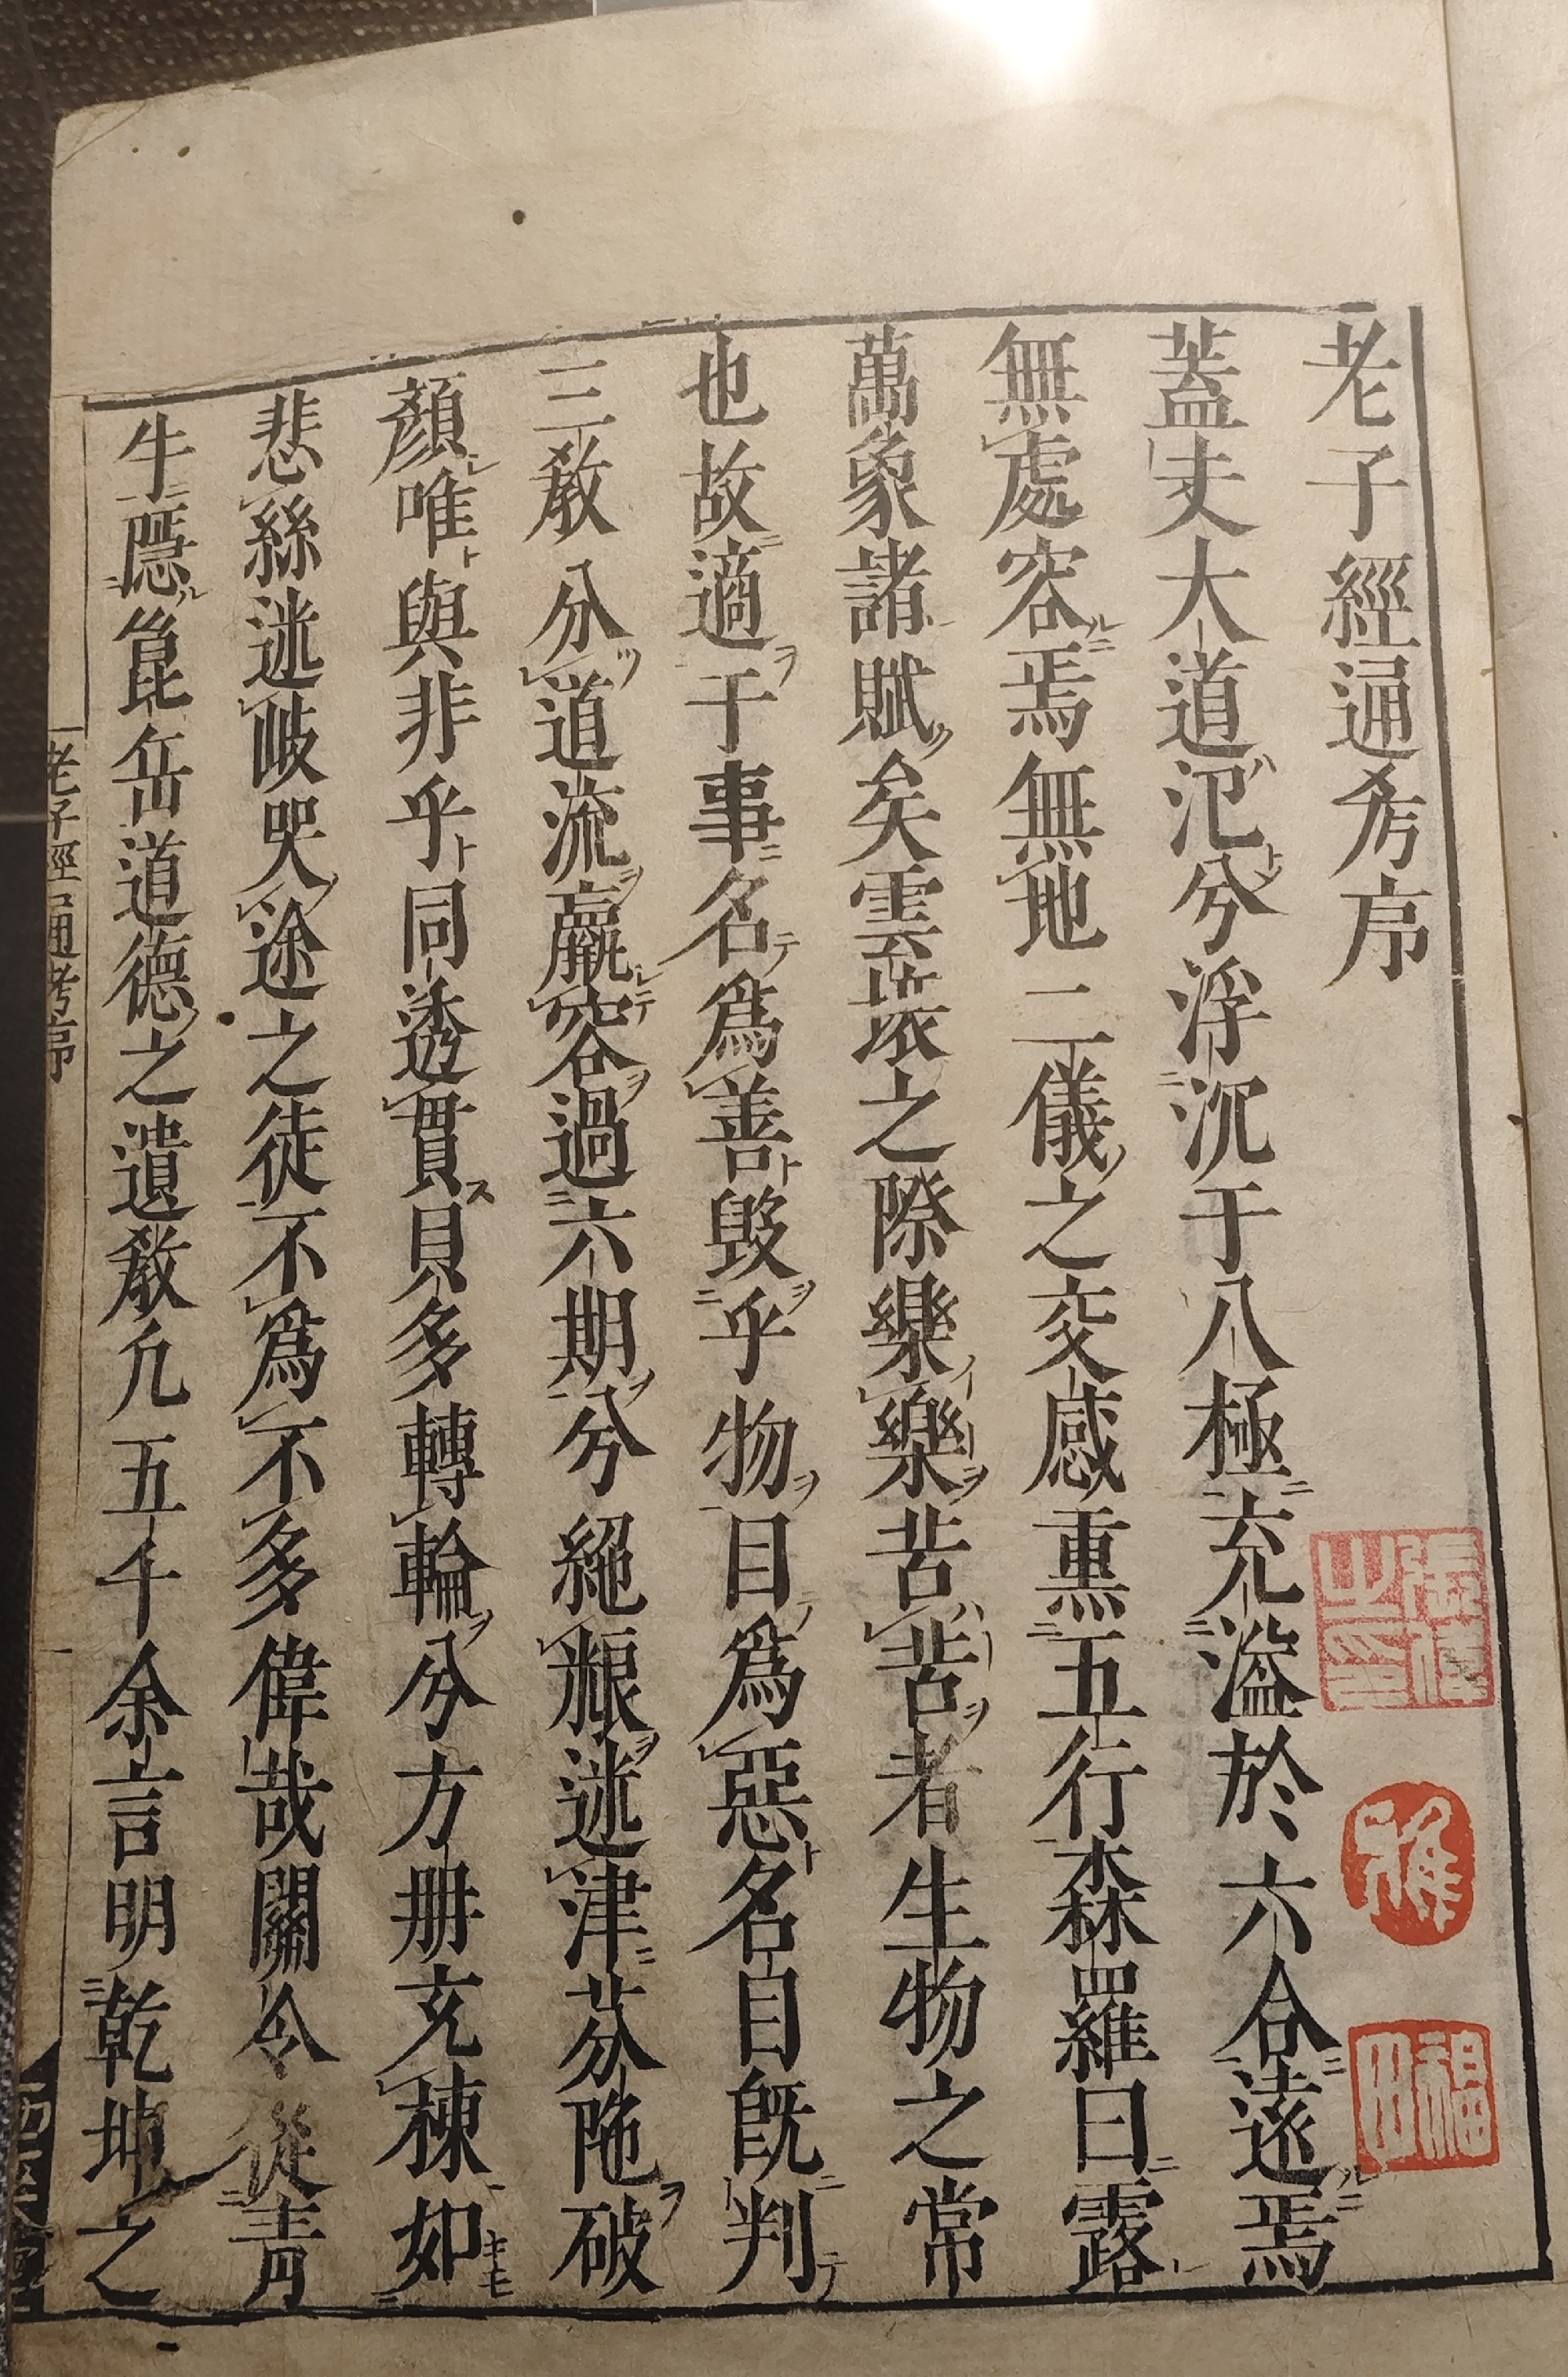 老子經通考序
蓋夫大道氾兮浮沉于八極充溢於六合遠焉
無處容焉無地二儀之交感熏五行森羅曰露
萬象諸賦矣雲壤之際樂樂苦苦者生物之常
也故適于事名爲善毀乎物目爲惡名目既判
三教分道流羸容過六期兮絕粮迷津芬陁破
顏唯與非乎同透貫貝多轉輪兮方册充棟如
悲絲迷岐哭途之徒不爲不多偉哉關令從青
牛隱崑岳道德之遺教凢五千余言明乾坤之
老子經通考序
福田